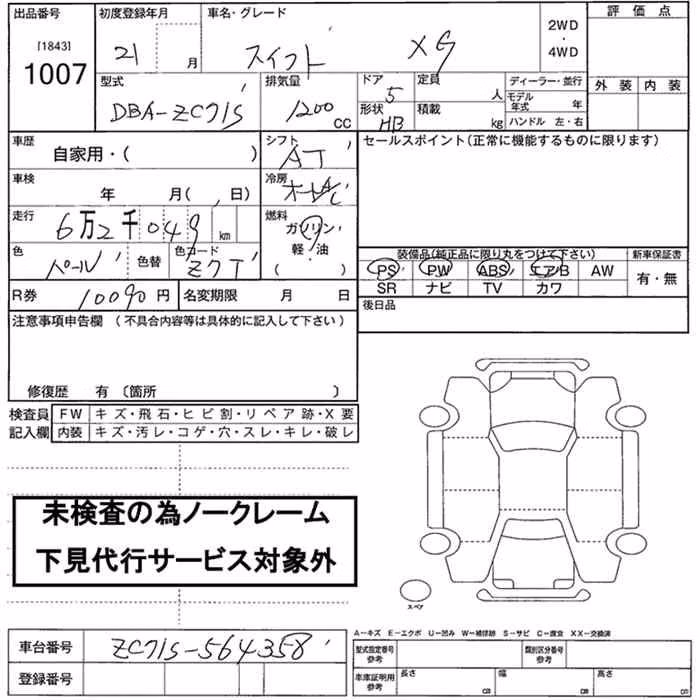 出品番号 初度登録年月 車名・グレード 2WD・4WD 評価点
[1843]
1007
21 月 スイフト XG
外装 内装
型式 排気量 ドア 定員 ディーラー・並行
DBA-ZC71S 1200 CC 5 人 モデル年式 年
形状 HB 積載 kg ハンドル 左・右
車歴 自家用・( ) シフト AT セールスポイント(正常に機能するものに限ります)
車検 年 月( 日) 冷房 オートA/C
走行 6万2千049 km 燃料 ガソリン・軽・油 ( )
色 パール 色替 色コード Z7T
装備品(純正品に限り丸をつけて下さい) 新車保証書
PS PW ABS エアB AW 有・無
SR ナビ TV カワ
R券 10090円 名変期限 月 日 後日品
注意事項申告欄 (不具合内容等は具体的に記入して下さい)
修復歴 有 〔箇所 〕
検査員 FW キズ・飛石・ヒビ割・リペア跡・X要
記入欄 内装 キズ・汚レ・コゲ・穴・スレ・キレ・破レ
未検査の為ノークレーム
下見代行サービス対象外
スペア
A-キズ E-エクボ U-凹み W-補修跡 S-サビ C-腐食 XX-交換済
車台番号 ZC71S-564358 型式指定番号 参考 類別区分番号 参考
登録番号 車庫証明用 参考 長さ cm 幅 cm 高さ cm